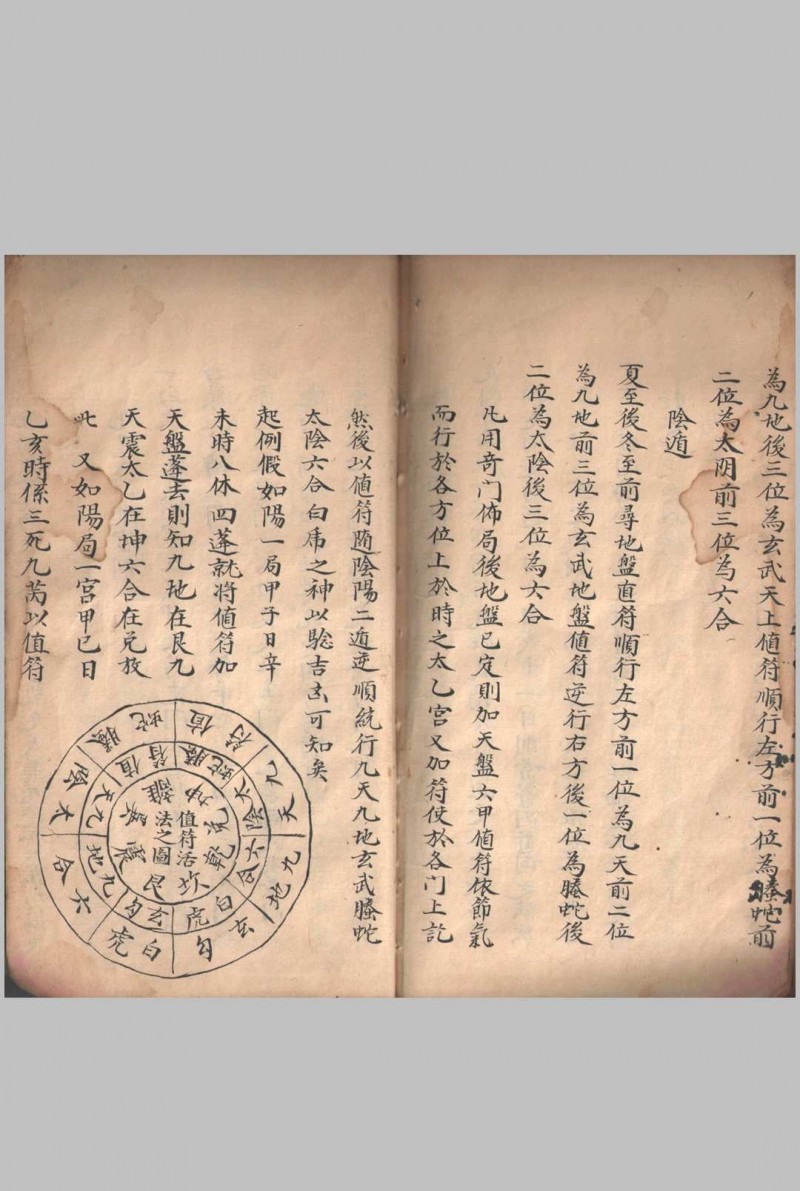 為九地後三位為玄武天上值符順行左方前一位為螣蛇前
二位為太阴前三位為六合
陰遁
夏至後冬至前尋地盤直符順行左方前一位為九天前二位
為九地前三位為玄武地盤值符逆行右方後一位為螣蛇後
二位為太陰後三位為六合
凡用奇门佈局後地盤已定則加天盤六甲值符依節氣
而行於各方位上於時之太乙宮又加符使於各门上訖
然後以值符随陰陽二遁逆順統行九天九地玄武螣蛇
太陰六合白虎之神以驗吉凶可知矣
起例假如陽一局甲子日辛
未時八休四蓬就将值符加
天盤蓬去則知九地在艮九
天震太乙在坤六合在兑放
此 又如陽局一宮甲己日
乙亥時係三死九芮以值符
值符活
法之圖
離坤兑乾坎艮震巽
值符
螣蛇
太陰
六合
白虎
玄勾
九地
九天
值符
九天
九地
玄勾
白虎
六合
太陰
螣蛇